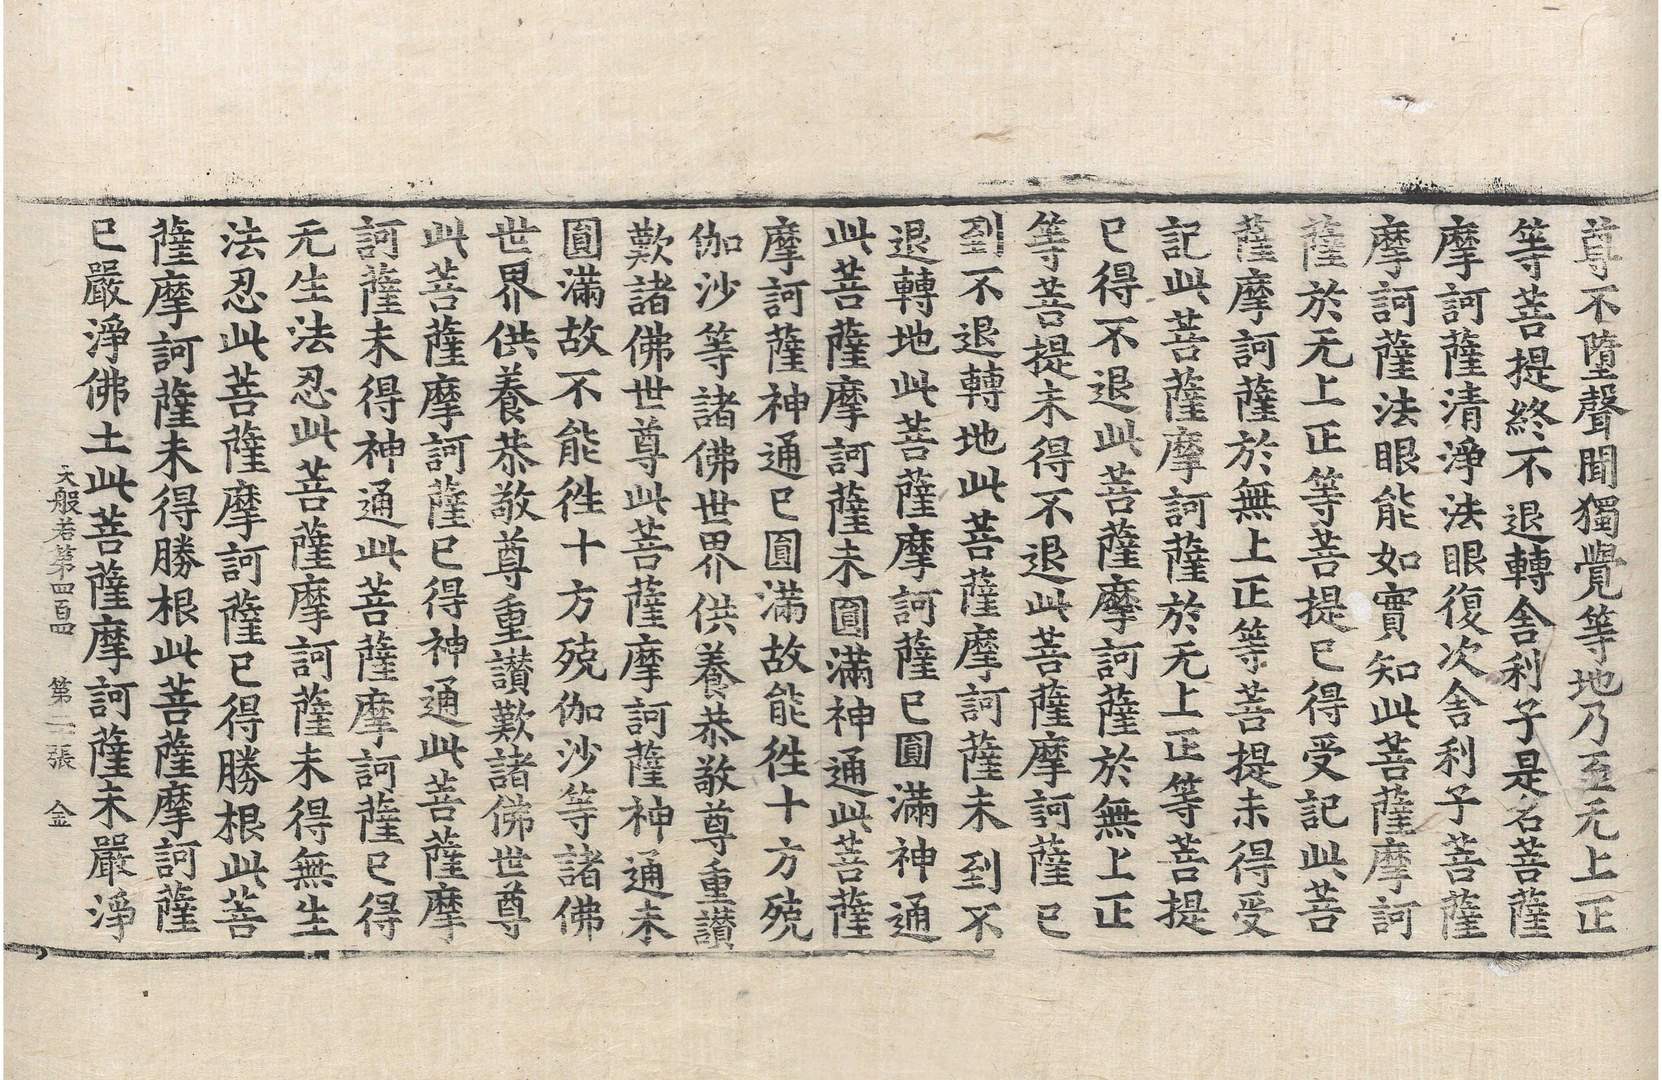 尊不墮聲聞獨覺等地乃至无上正
等菩提終不退轉舍利子是名菩薩
摩訶薩清淨法眼復次舍利子菩薩
摩訶薩法眼能如實知此菩薩摩訶
薩於无上正等菩提已得受記此菩
薩摩訶薩於無上正等菩提未得受
記此菩薩摩訶薩於无上正等菩提
已得不退此菩薩摩訶薩於無上正
等菩提未得不退此菩薩摩訶薩已
到不退轉地此菩薩摩訶薩未到不
退轉地此菩薩摩訶薩已圓滿神通
此菩薩摩訶薩未圓滿神通此菩薩
摩訶薩神通已圓滿故能徃十方殑
伽沙等諸佛世界供養恭敬尊重讚
歎諸佛世尊此菩薩摩訶薩神通未
圓滿故不能徃十方殑伽沙等諸佛
世界供養恭敬尊重讚歎諸佛世尊
此菩薩摩訶薩已得神通此菩薩摩
訶薩未得神通此菩薩摩訶薩已得
无生法忍此菩薩摩訶薩未得無生
法忍此菩薩摩訶薩已得勝根此菩
薩摩訶薩未得勝根此菩薩摩訶薩
已嚴淨佛土此菩薩摩訶薩未嚴淨
大般若第四百四 第二張 金